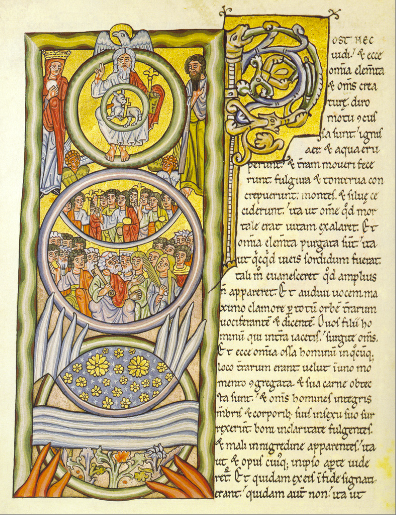 POST HEC
uidi. & ecce
omnia elemta
& omis crea
tura diro
motu ꝯcus
sa sunt. ignis
aer. & aqua eru
perunt. & tram moueri fece
runt. fulgura & tonitrua con
crepuerunt. montes & silue ce
ciderunt. ita ut ome qd mor
tale erat uitam exalaret. Et
omnia elemta purgata sunt. ita
ut qcqd in eis sordidum fuerat.
tali in euanesceret qd amplius
n appareret. Et audiui uocem ma
ximo clamore p totu orbe trarum
uociferante & dicente. O uos filii ho
minu qui in tra iacetis. surgite oms.
Et ecce omia ossa hominu in qcuq,
loco trarum erant uelut in uno mo
mento ꝯgregata. & sua carne obtec
ta sunt. & omis homines integris
mbris & corporib; suis in sexu suo sur
rexerunt. boni in claritate fulgentes.
& mali in nigredine apparentes. ita
ut & opus cuiq; in ipso apte uide
ret. Et quidam ex eis in fide signati
erant. quidam aut non. ita ut